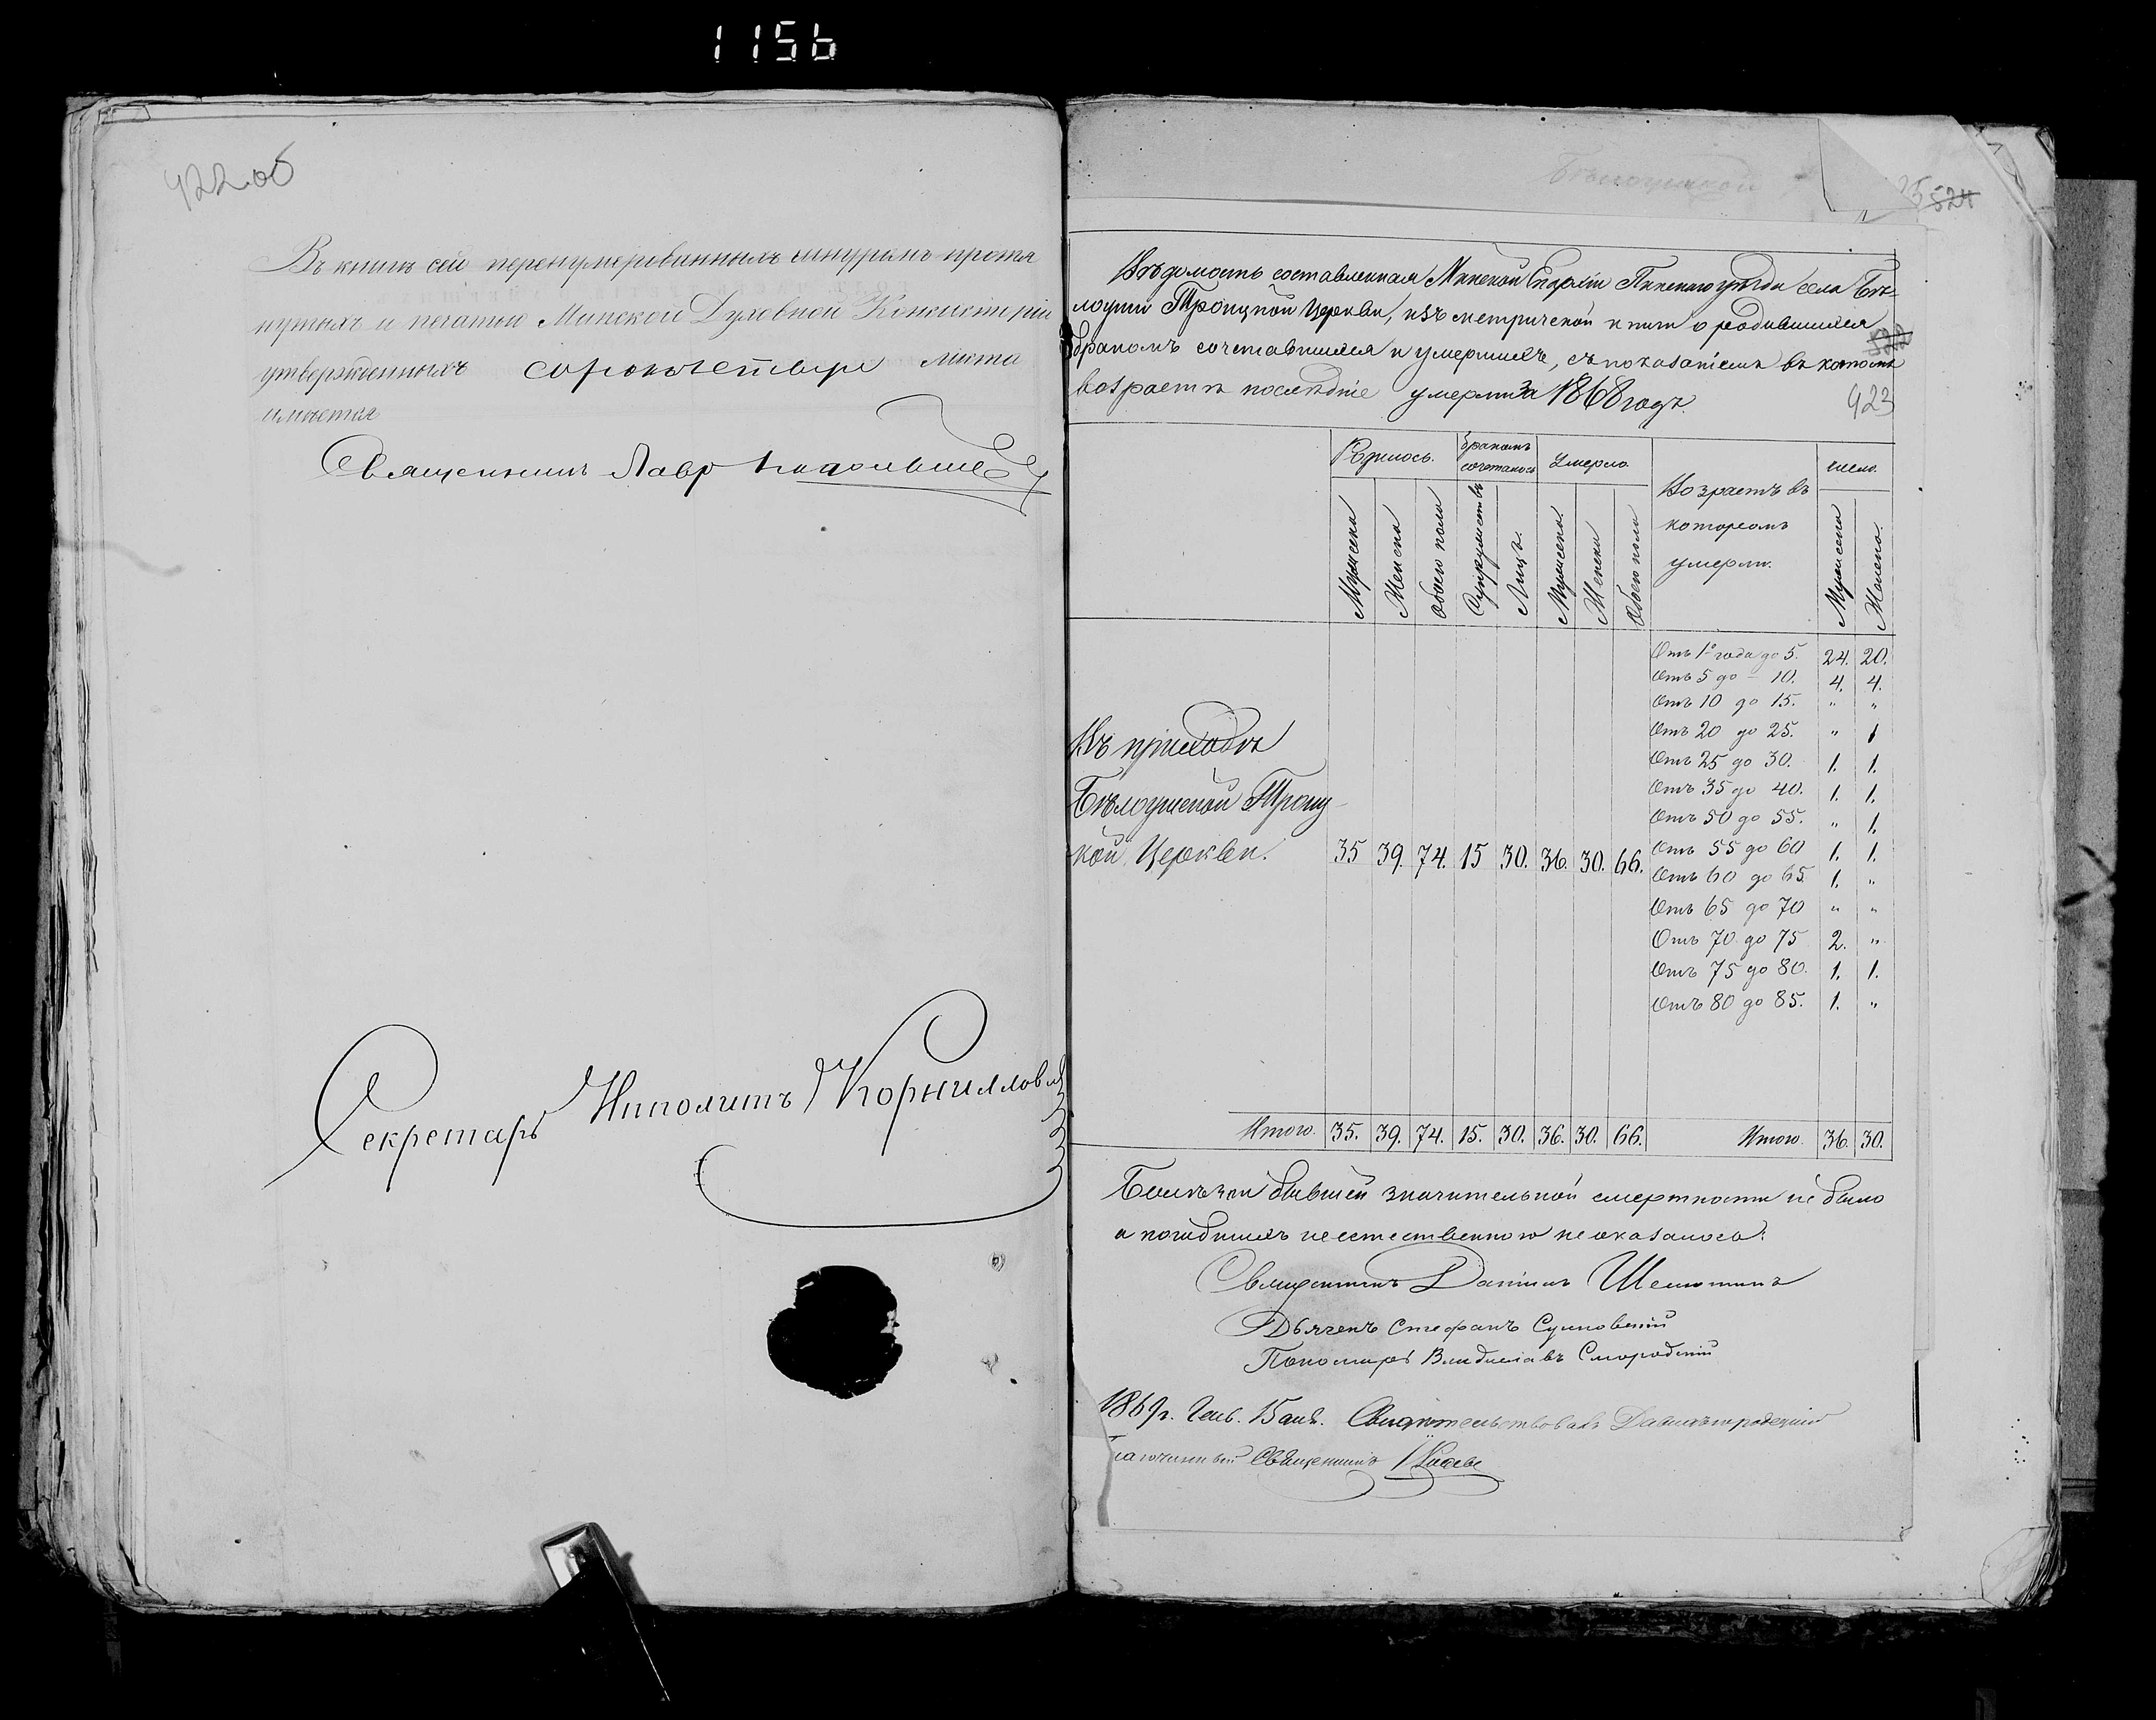 1156
422об
Въ книгѣ сей перенумерованныхъ шнуромъ протя
нутыхъ и печатью Минской Духовной Консисторіи
утвержденныхъ сорокчетыре листа
имѣется
Священникъ Лавр
Секретарь Иполитъ Корнилович
524
Вѣдомость составленная Минской Епархіи Пинскаго уѣзда села Бѣ-
лоуши Троицкой Церкви, изъ метрической книги о родившихся
бракомъ сочетавшихся и умершихъ, съ показаніемъ въ какомъ
возрастѣ послѣдніе умерли за 1868 годъ.
423
Родилось. бракомъ сочеталось Умерло. Возрастъ въ которомъ умерли. число.
Мужеска Женска Обоего пола Супружествъ Лицъ. Мужеска. Женска Обоего пола Мужеска Женска.
Отъ 1го года до 5. 24. 20.
Отъ 5 до – 10. 4. 4.
Отъ 10 до 15. " "
Отъ 20 до 25. " 1
Отъ 25 до 30. 1. 1.
Отъ 35 до 40. 1. 1.
Отъ 50 до 55. " 1.
Отъ 55 до 60 1. 1.
Отъ 60 до 65. 1. "
Отъ 65 до 70 " "
Отъ 70 до 75 2. "
Отъ 75 до 80. 1. 1.
Отъ 80 до 85. 1. "
Въ приходѣ
Бѣлоушской Троиц-
кой Церкви. 35 39. 74. 15 30. 36. 30. 66.
Итого. 35. 39. 74. 15. 30. 36. 30. 66. Итого. 36. 30.
Болѣзни бывшей значительной смертности не было
а погибшихъ неестественною не оказалось.
Священникъ Даніилъ Шелютинъ
Дьячекъ Стефанъ Сулковскій
Пономарь Владиславъ Смородскій
1869 г. Генв. 15 дня. Свидѣтельствовалъ Давидъгородецкій
благочинный Священникъ